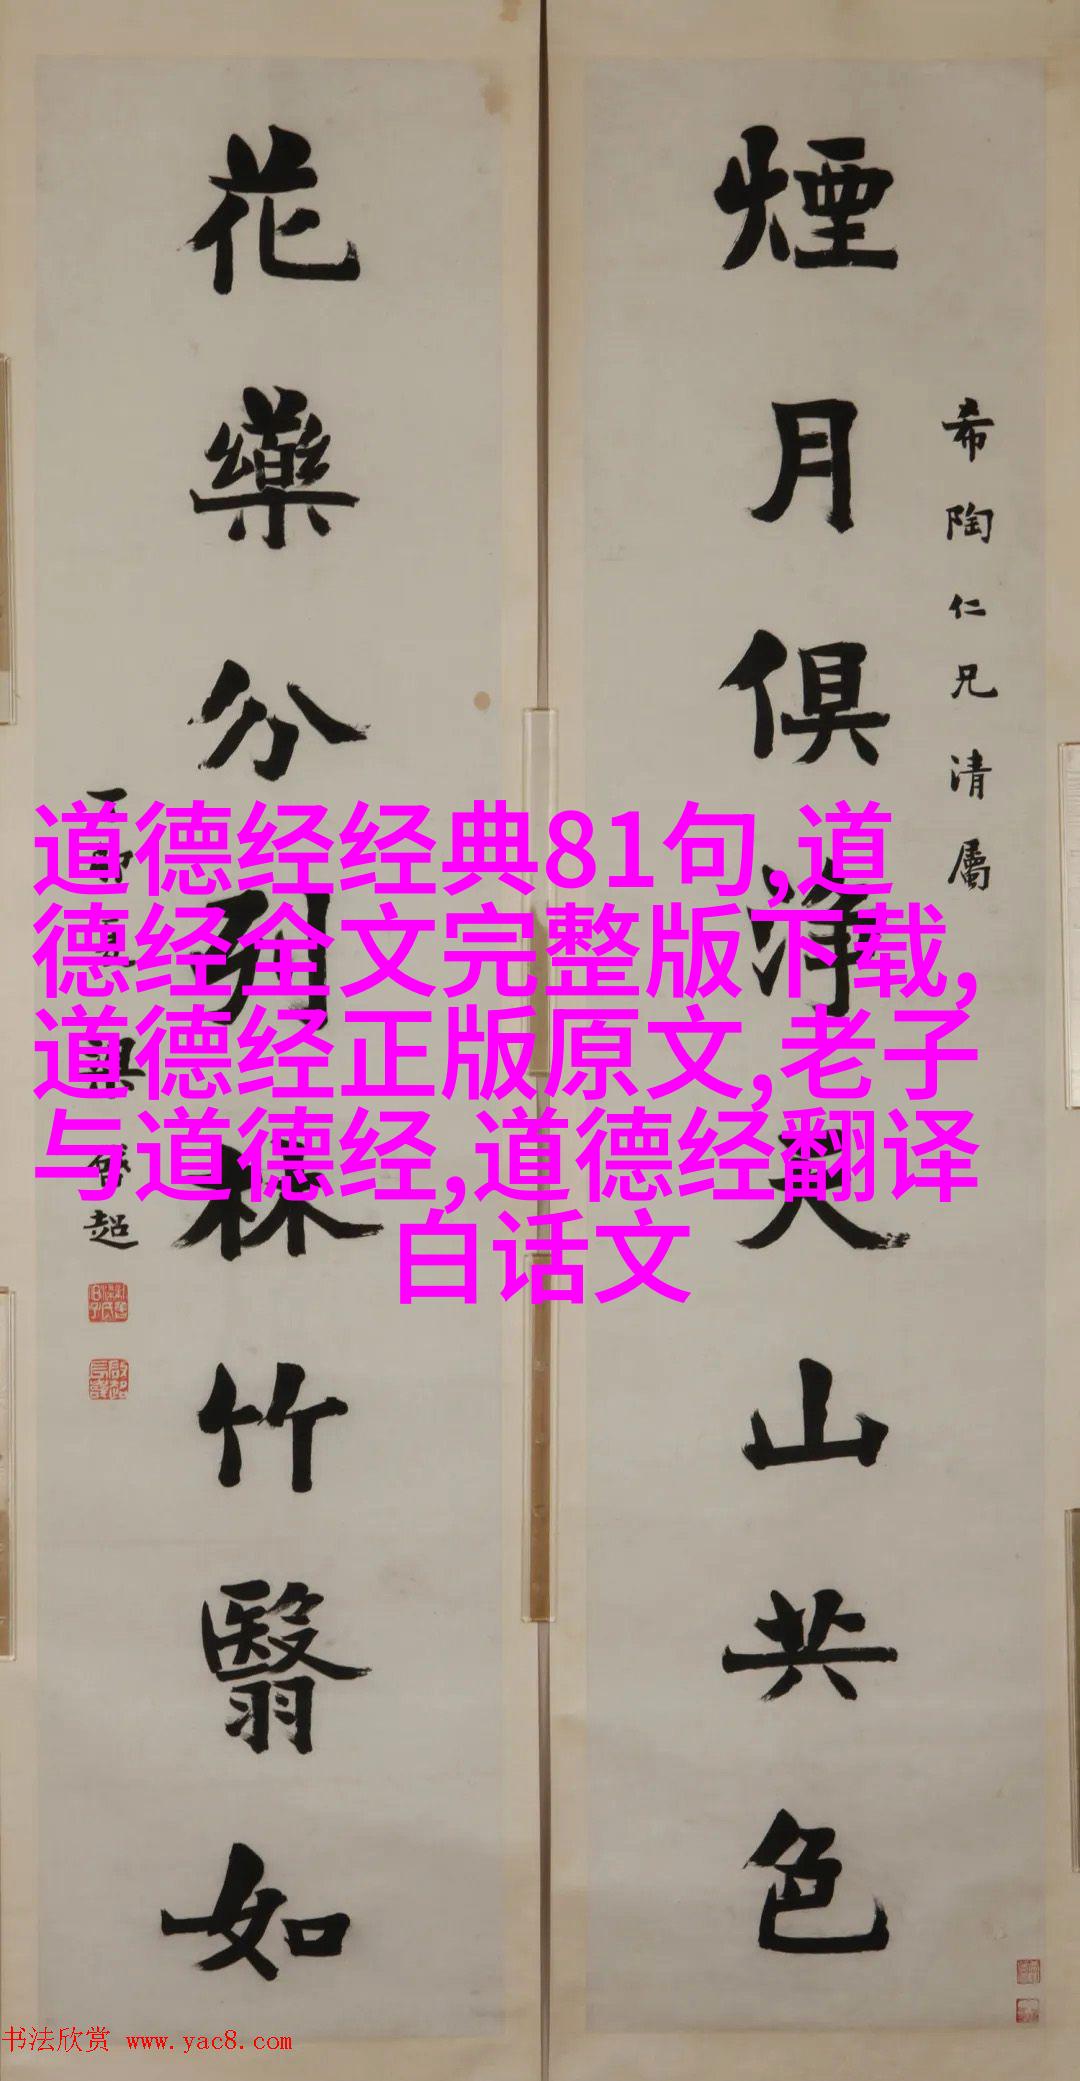 希陶仁兄清屬
煙月俱淨天山共色
花藥分列林竹翳如
梁啓超
道德经经典81句,道
德经全文完整版下载,
道德经正版原文,老子
与道德经,道德经翻译
白话文
书法欣赏 www.yac8.com